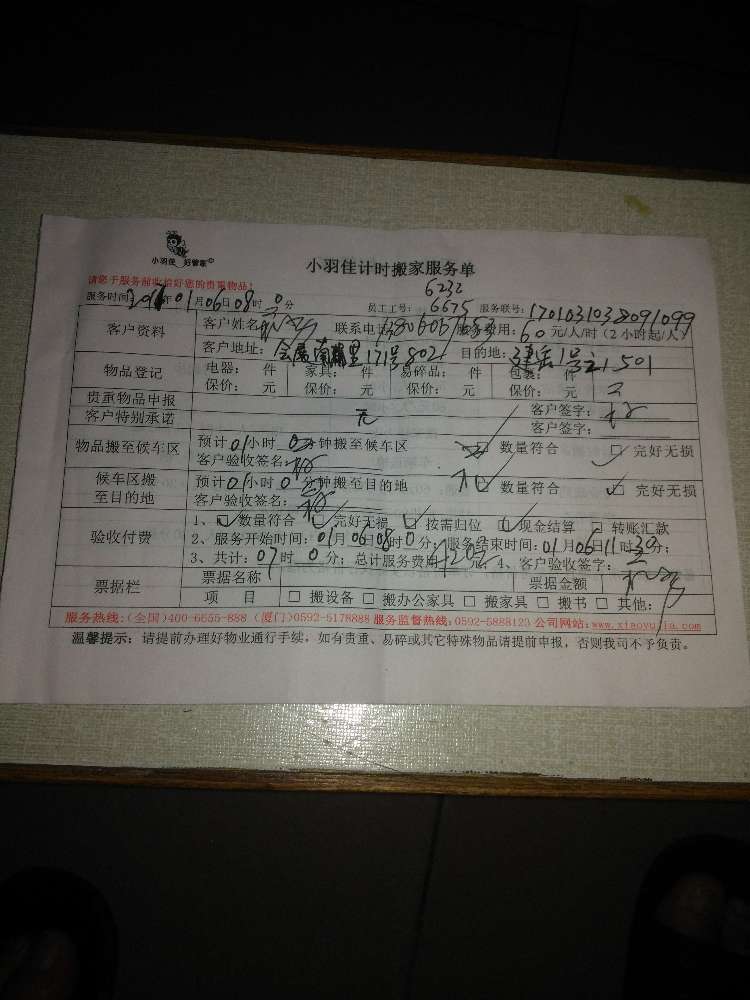 小羽佳 好管家
小羽佳计时搬家服务单
请您于服务前收拾好您的贵重物品!
6232
服务时间: 年01月06日08时0分 员工工号: 6675 服务联号:1701031038091099
客户资料 客户姓名: 联系电话: 服务费用:60元/人/时(2小时起/人)
客户地址: 171号802 目的地: 501
物品登记 电器: 件 家具: 件 易碎品: 件 包裹: 件
保价: 元 保价: 元 保价: 元 保价: 元
贵重物品申报 无 客户签字:
客户特别承诺 客户签字:
物品搬至候车区 预计01小时0分钟搬至候车区 数量符合 完好无损
客户验收签名:
候车区搬至目的地 预计01小时0分钟搬至目的地 数量符合 完好无损
客户验收签名:
验收付费 1、数量符合 完好无损 按需归位 现金结算 转账汇款
2、服务开始时间:01月06日08时0分;服务结束时间:01月06日11时30分;
3、共计:07时0分;总计服务费用420元;4、客户验收签字:
票据栏 票据名称 票据金额
项 目 □ 搬设备 □ 搬办公家具 □ 搬家具 □ 搬书 □ 其他:
服务热线:(全国)400-6655-888 (厦门)0592-5178888 服务监督热线:0592-5888123 公司网站:www.xiaoyujia.com
温馨提示:请提前办理好物业通行手续,如有贵重、易碎或其它特殊物品请提前申报,否则我司不予负责。